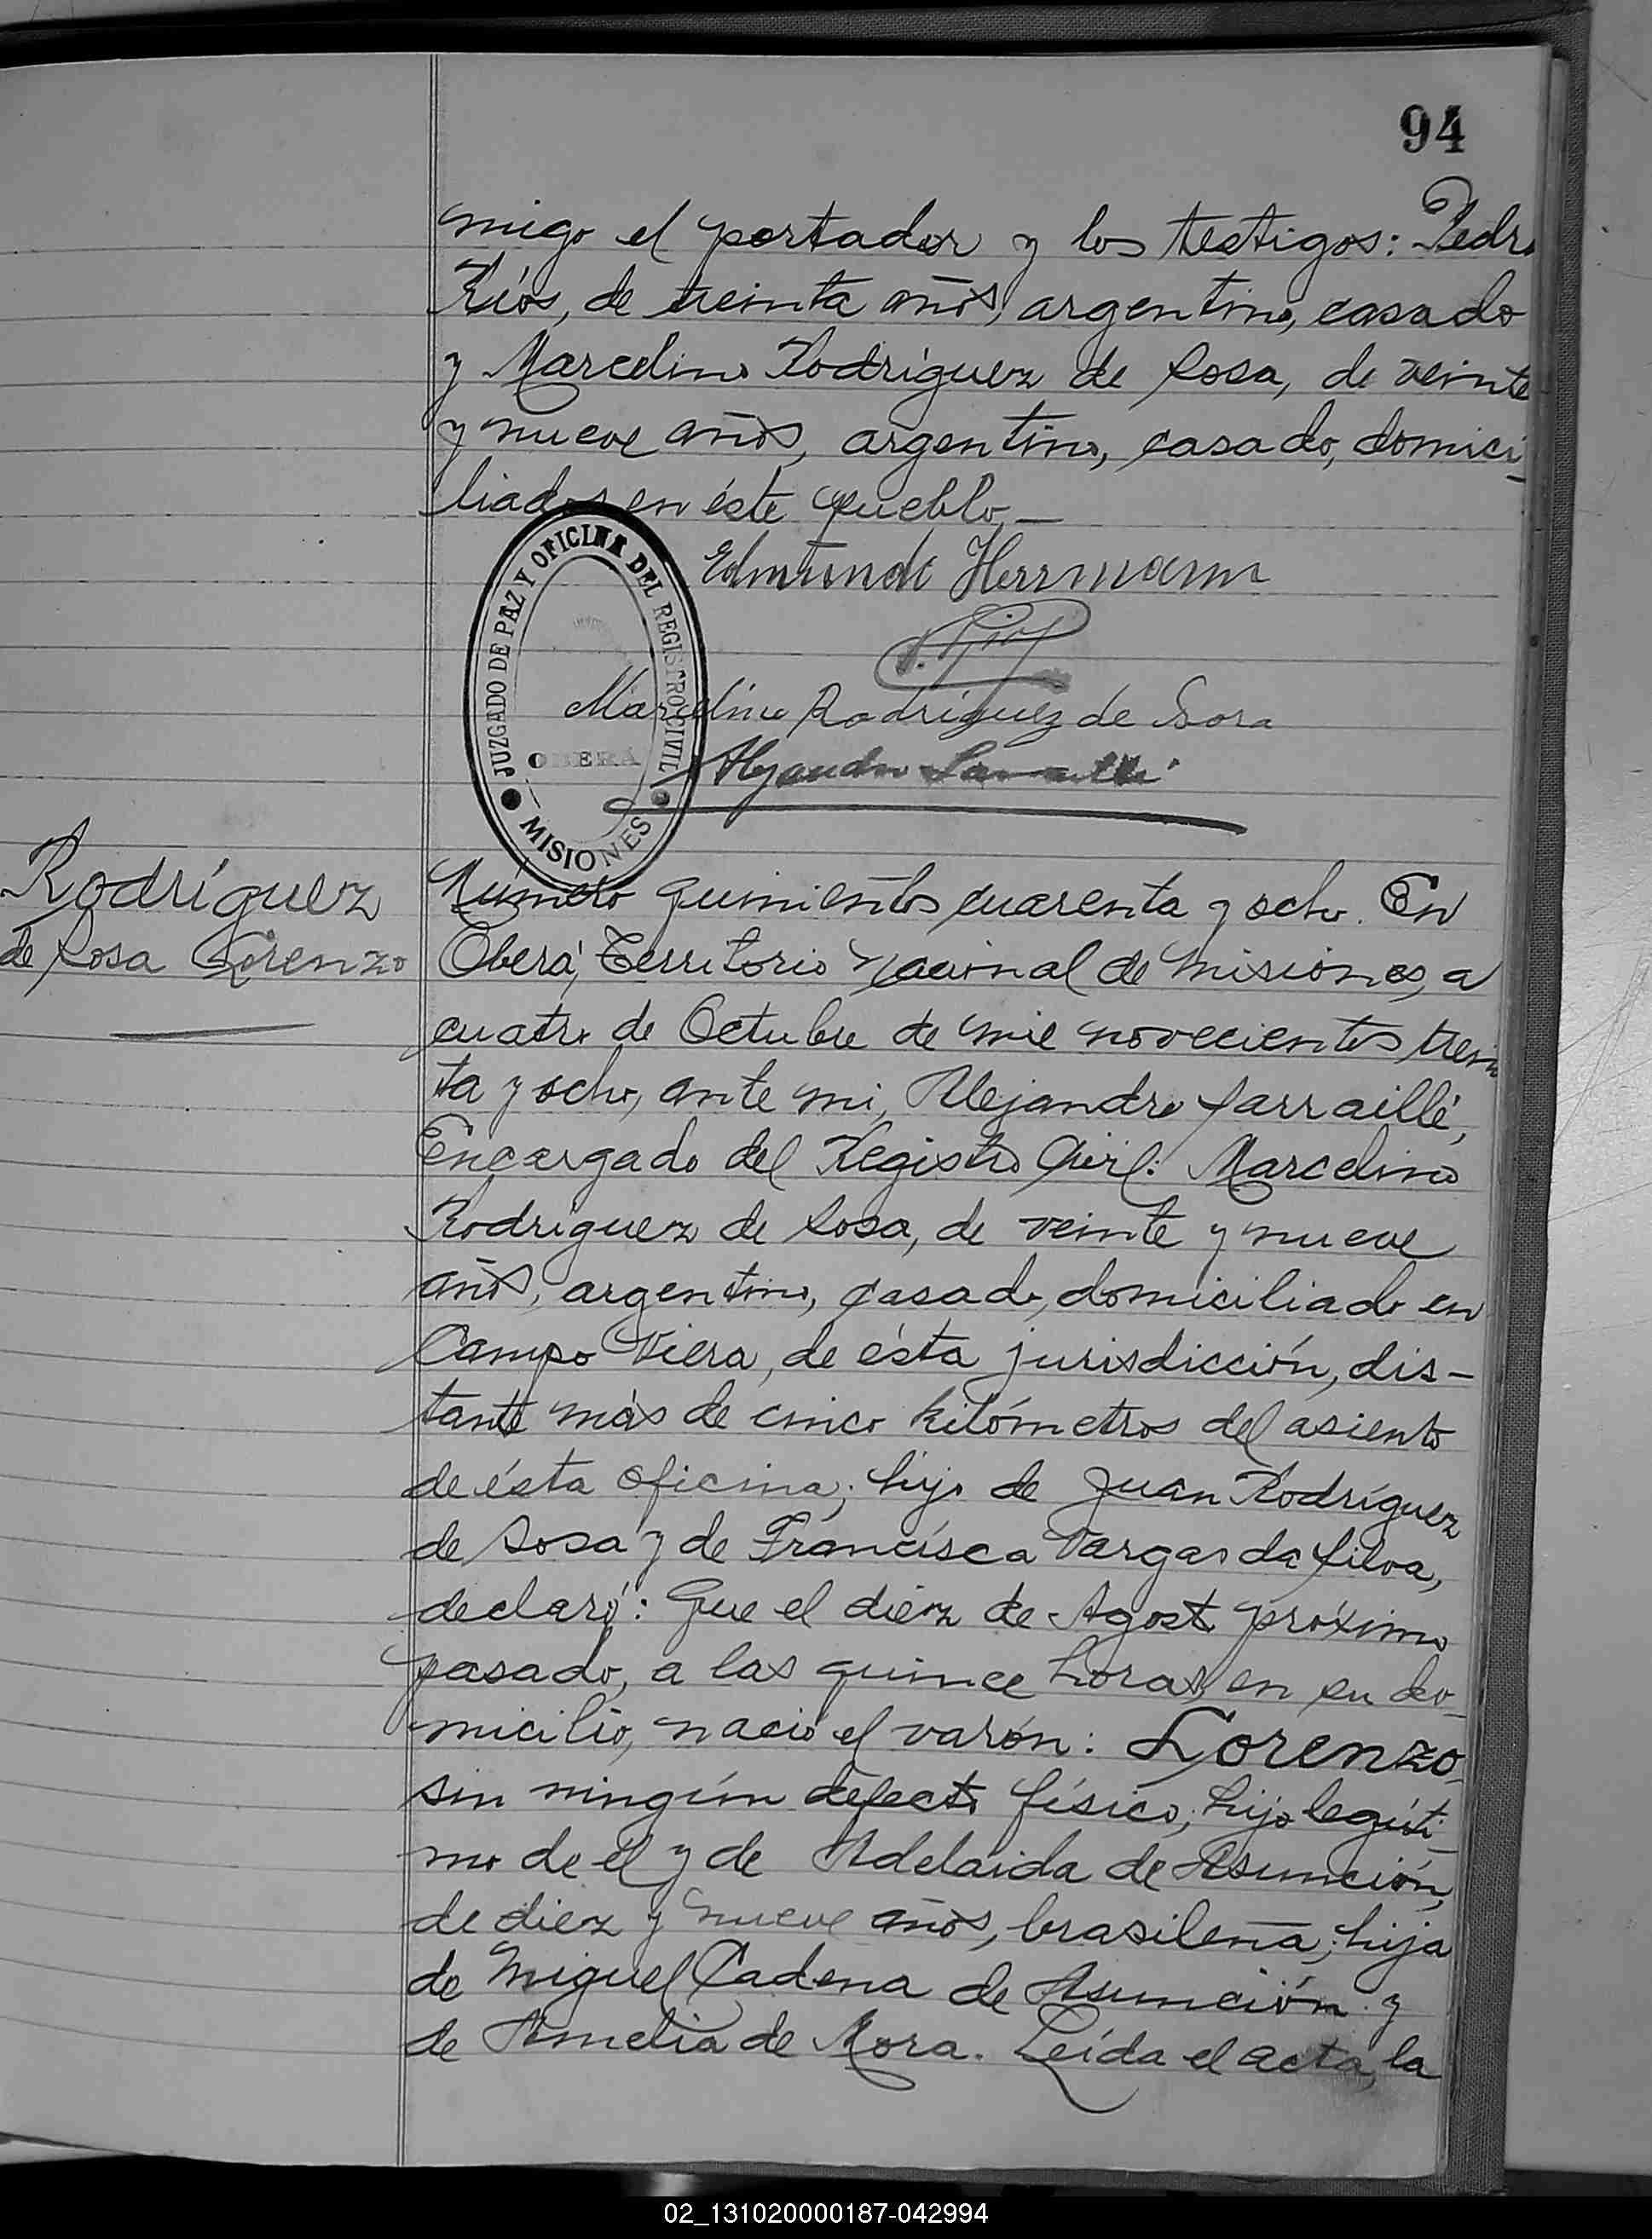 94
migo el portador y los testigos: Pedro
Ríos, de treinta años, argentino, casado
y Marcelino Rodríguez de Sosa, de veinte
y nueve años, argentino, casado, domici-
liados en éste pueblo.—
Edmundo Herrmann
P. Rios
Marcelino Rodriguez de Sosa
Alejandro Larraillé
JUZGADO DE PAZ Y OFICINA DEL REGISTRO CIVIL
OBERÁ
MISIONES
Rodríguez
de Sosa Lorenzo
Número quinientos cuarenta y ocho. En
Oberá, Territorio Nacional de Misiones, a
cuatro de Octubre de mil novecientos trein
ta y ocho, ante mi, Alejandro Larraillé,
Encargado del Registro Civil: Marcelino
Rodríguez de Sosa, de veinte y nueve
años, argentino, casado, domiciliado en
Campo Viera, de ésta jurisdicción, dis-
tante más de cinco kilómetros del asiento
de ésta oficina; hijo de Juan Rodríguez
de Sosa y de Francisca Vargas da Silva,
declaró: Que el diez de Agosto próximo
pasado, a las quince horas, en su do-
micilio, nació el varón: Lorenzo,
sin ningún defecto físico; hijo legíti-
mo de él y de Adelaida de Asunción,
de diez y nueve años, brasileña; hija
de Miguel Cadena de Asunción y
de Amelia de Mora. Leída el acta, la
02_131020000187-042994